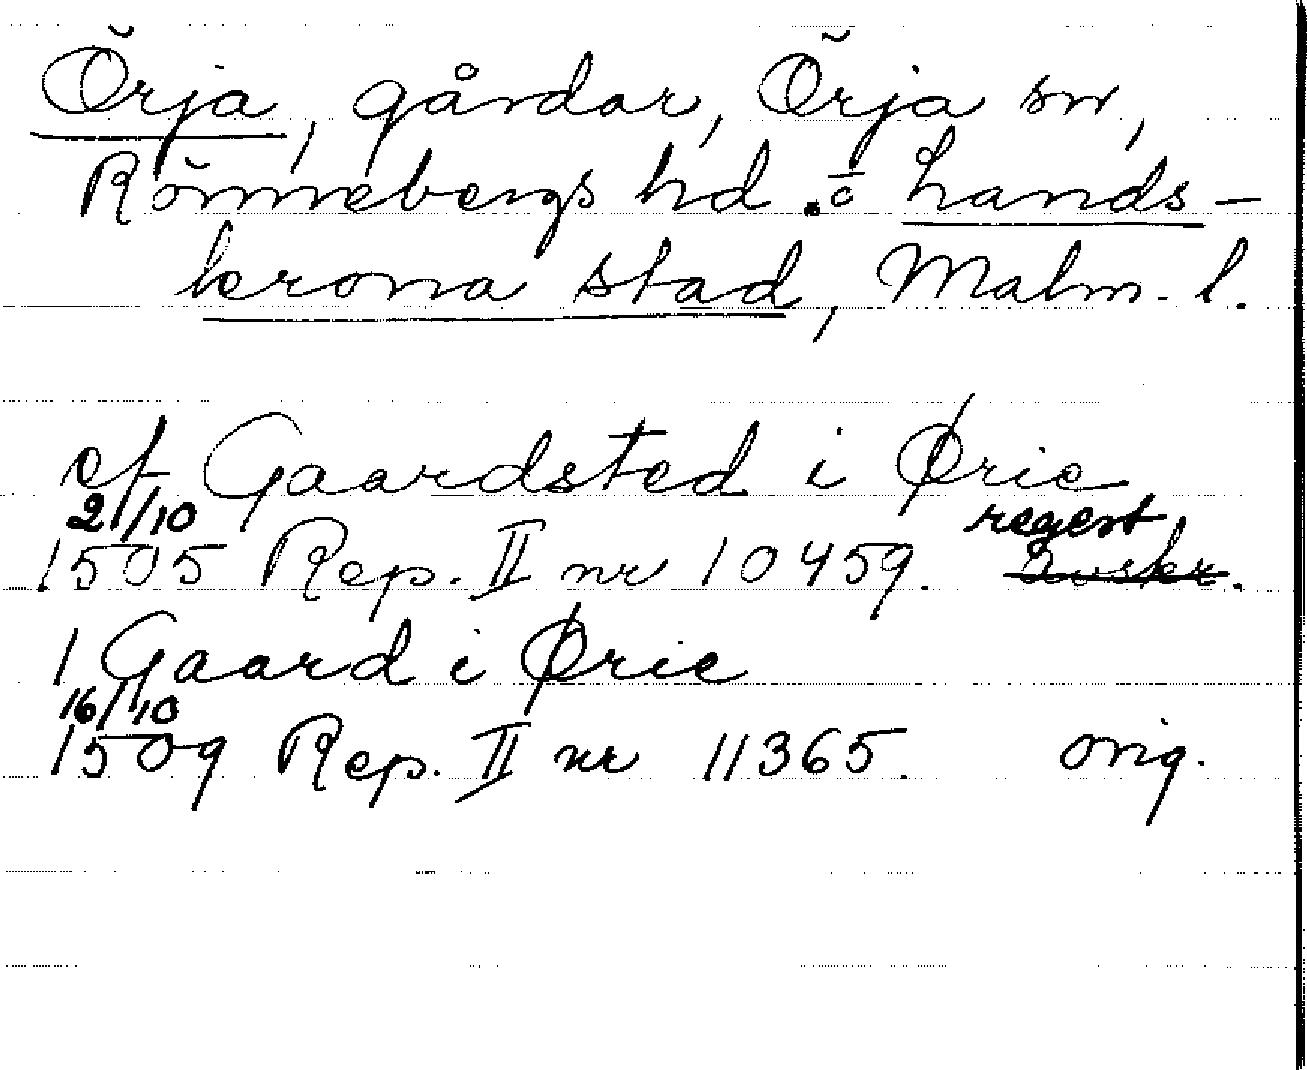 Örja, gårdar, Örja sn,
Rönnebergs hd. o Lands-
krona stad, Malm. l.
et Gaardsted i Ørie
21/10 regest
1505 Rep. II nr 10459.
1 Gaard i Ørie
16/10
1509 Rep. II nr 11365. orig.